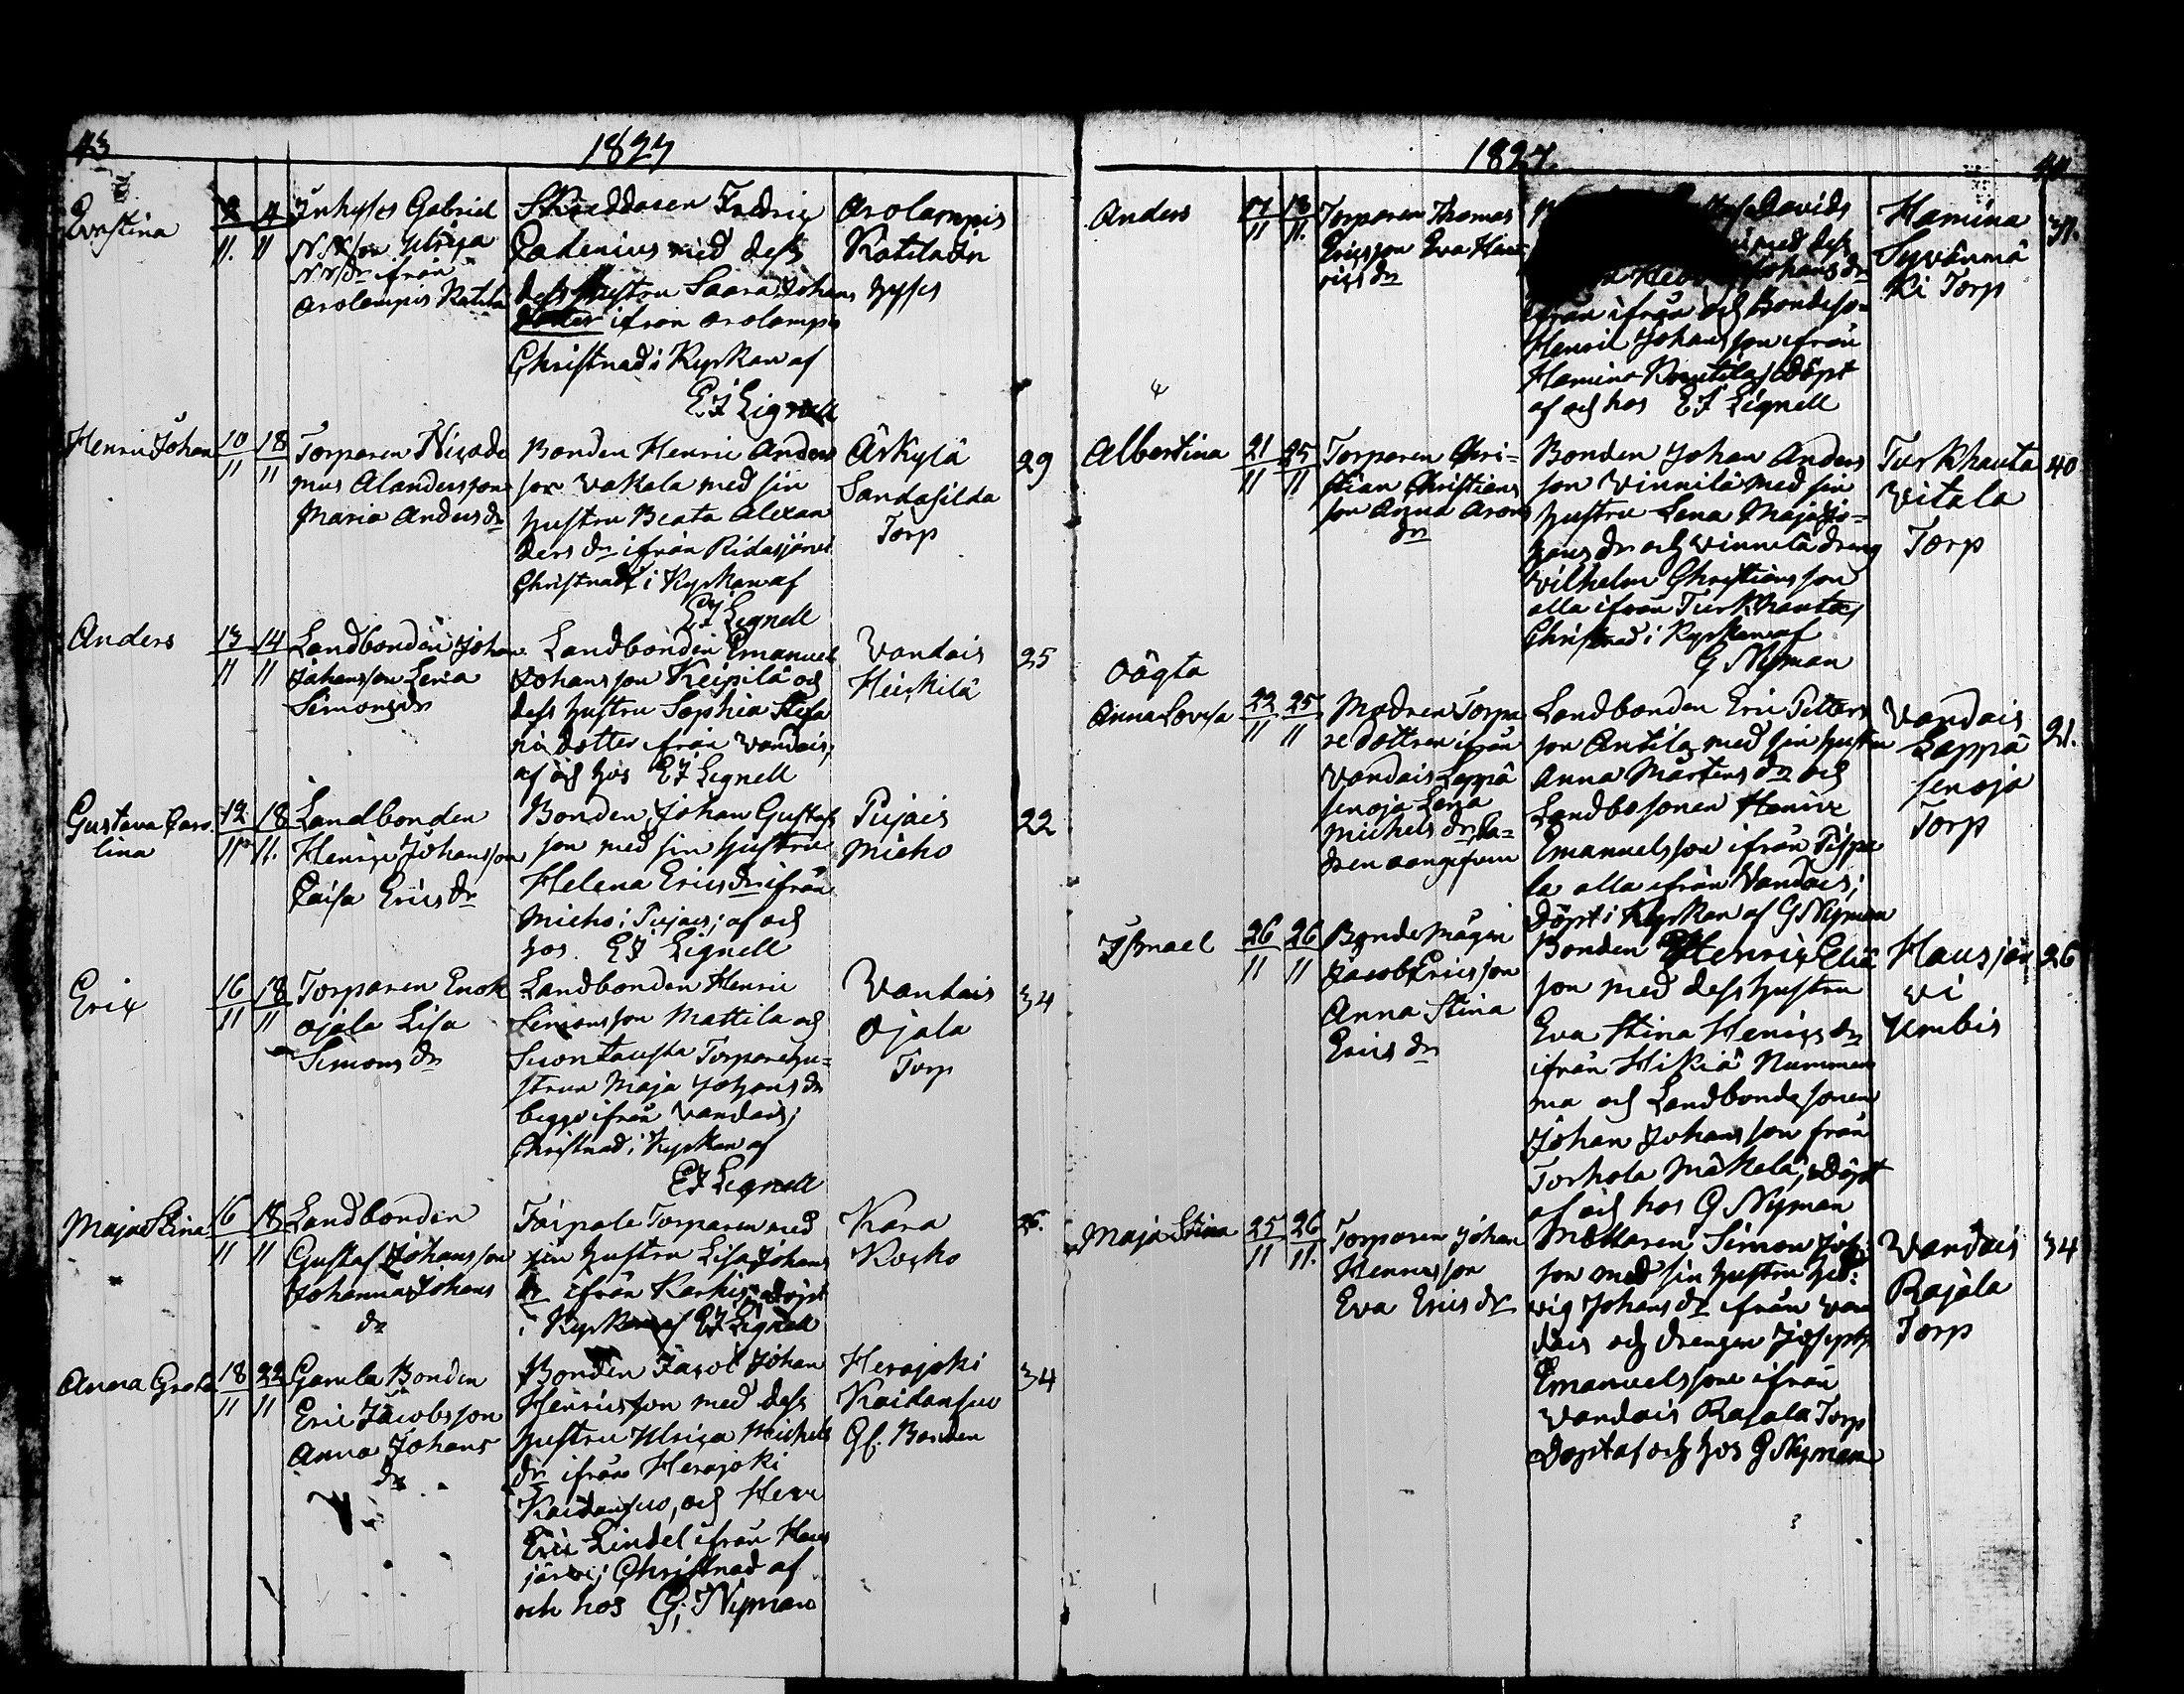 43
1827
Justina 2/11. 4/11
Inhyses Gabriel
N N son Ulrica
N N dr ifrån
Arolampis Katila
Skreddaren Fredric
Zadenius med dess
dess hustru Saara Johans
dotter ifrån Arolampis
Christnad i Kyrkan af
E J Lignell
Arolampis
Katila In
hyses
Henric Johan 10/11 18/11
Torparen Nicode
mus Alandersson
Maria Anders dr
Bonden Henric Anders
son Wakela med sin
hustru Beata Alexan
ders dr ifrån Ridasjärvi
Christnad i Kyrkan af
E J Lignell
Äskylä
Sandasilda
Torp
29
Anders 13/11 14/11
Landbonden Johan
Johansson Lena
Simonsdr
Landbonden Emanuel
Johansson Keipilä och
dess hustru Sophia Stefa
ni dotter ifrån Vandais;
af och hos E J Lignell
Vandais
Heickilä
25
Gustava Caro
lina 12/11 18/11.
Landbonden
Henric Johansson
Caisa Erics dr
Bonden Johan Gustafs
son med sin hustru
Helena Erics dr ifrån
Micho i Pujais; af och
hos E J Lignell
Pujais
Micho
22
Eric 16/11 18/11
Torparen Enok
Ojala Lisa
Simons dr
Landbonden Henric
Simonsson Mattila och
Suontausta Torparehu-
strun Maja Johans dr
begge ifrån Vandais;
Christnad i Kyrkan af
E J Lignell
Vandais
Ojala
Torp
34
Maja Stina 16/11 18/11
Landbonden
Gustaf Johansson
Johanna Johans
dr
Torpale Torparen med
sin hustru Lisa Johans
dr ifrån Karkis; döpt
i Kyrkan af E J Lignell
Kara
Kocko
26.
Anna Greta 18/11 22/11
Gamla Bonden
Eric Jacobsson
Anna Johans
dr
Bonden Jacob Johan
Henricsson med dess
hustru Ulrica Michels
dr ifrån Herajoki
Kaidansuo, och Herr
Eric Lindel ifrån Haus
järvi; Christnad af
och hos G; Nyman
Herajoki
Kaidansuo
Gl. Bonden
34
1827.
44
Anders 17/11 18/11.
Torparen Thomas
Ericsson Eva Hen
rics dr
Davids
med dess
Johans dr
ifrån och Bondeso-
Henric Johansson ifrån
Hamina Knutila; döpt
af och hos E J Lignell
Hamina
Syvänmä
ki Torp
31.
Albertina 21/11 25/11
Torparen Chri-
stian Christians
son Anna Arons
dr
Bonden Johan Anders
son Winnilä med sin
hustru Lena Maja Jo-
hans dr och Winnilä dreng
Wilhelm Christiansson
alla ifrån Turkhauta;
Christnad i Kyrkan af
G Nyman
Turkhauta
Witala
Torp
40
Oägta
Anna Lovisa 22/11 25/11
Modren Torpa
re dottren ifrån
Vandais Leppä
senoja Lena
Michels dr; Fa-
dren oangifven
Landbonden Eric Petters
son Antila med sin hustru
Anna Mårtens dr och
Landbosonen Henric
Emanuelsson ifrån Pispa
la alla ifrån Vandais;
döpt i Kyrkan af G Nyman
Vandais
Leppä
senoja
Torp
21.
Ismael 26/11 26/11
Bonde Mågen
Jacob Ericsson
Anna Stina
Erics dr
Bonden Henric Eliä
son med dess hustru
Eva Stina Henrics dr
ifrån Hikiä Nummen
ma och Landbondesonen
Johan Johansson från
Torhola Mäkelä; döpt
af och hos G Nyman
Hausjär
vi
Umbis
26
Maja Stina 25/11 26/11.
Torparen Johan
Henricsson
Eva Erics dr
Mollaren Simon Joh:
son med sin hustru Hed:
vig Johans dr ifrån Van
dais och drengen Joseph
Emanuelsson ifrån
Vandais Rajala Torp
Döpt af och hos G Nyman
Vandais
Rajala
Torp
34